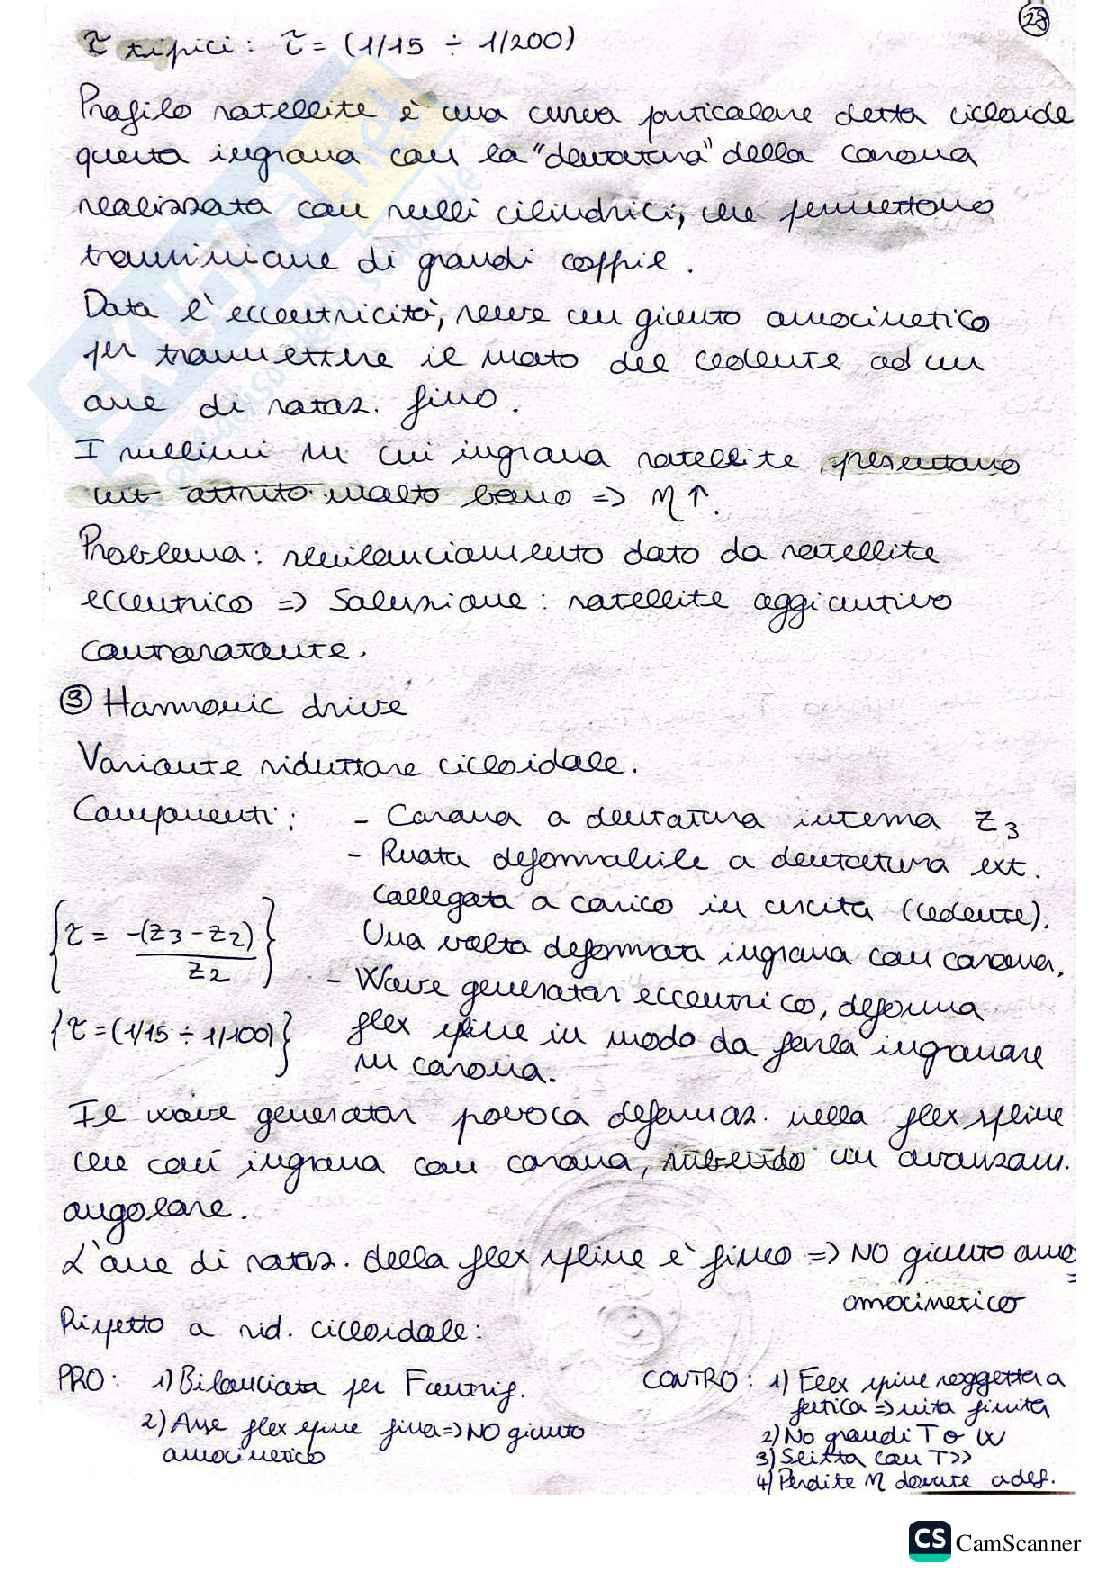 28
τ tipici: τ = (1/15 ÷ 1/200)
Profilo satellite è una curva particolare detta cicloide
questa ingrana con la "dentatura" della corona
realizzata con rulli cilindrici, che permettono
trasmissione di grandi coppie.
Data l'eccentricità, serve un giunto omocinetico
per trasmettere il moto del cedente ad un
asse di rotaz. fisso.
I rullini su cui ingrana satellite presentano
un attrito molto basso => η↑.
Problema: sbilanciamento dato da satellite
eccentrico => Soluzione: satellite aggiuntivo
controrotante.
③ Harmonic drive
Variante riduttore cicloidale.
Componenti: - Corona a dentatura interna Z3
- Ruota deformabile a dentatura ext.
Collegata a carico in uscita (cedente).
Una volta deformata ingrana con corona.
- Wave generator eccentrico, deforma
flex spline in modo da farla ingranare
su corona.
{τ = -(Z3-Z2)/Z2}
{τ = (1/15 ÷ 1/100)}
Il wave generator povoca deformaz. nella flex spline
che così ingrana con corona, subendo un avanzam.
angolare.
L'asse di rotaz. della flex spline è fisso => NO giunto omo
omocinetico
Rispetto a rid. cicloidale:
PRO: 1) Bilanciata per Fcentrif.
2) Asse flex spline fisso => NO giunto
omocinetico
CONTRO: 1) Flex spline soggetta a
fatica => vita finita
2) No grandi T o W
3) Slitta con T>>
4) Perdite η dovute a def.
CS CamScanner